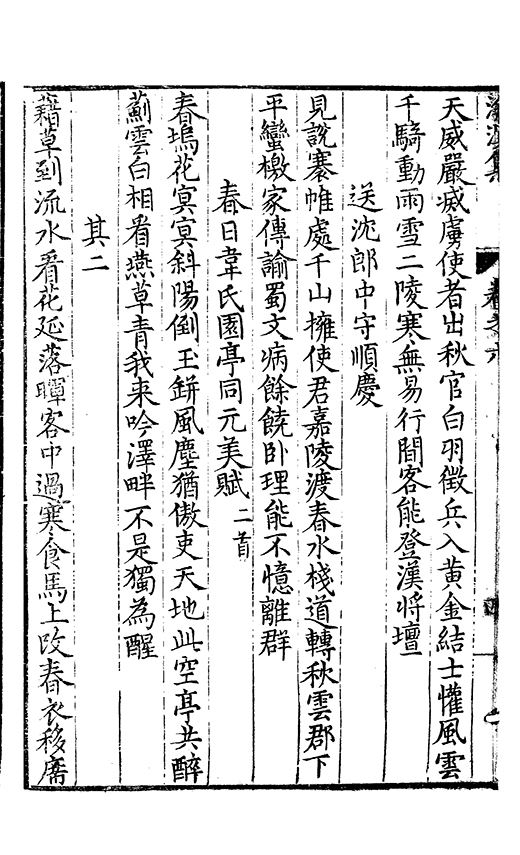 卷之六
天威嚴滅虜使者出秋官白羽徵兵入黃金結士懽風雲
千騎動雨雪二陵寒無易行間客能登漢將壇
送沈郎中守順慶
見說褰帷處千山擁使君嘉陵渡春水棧道轉秋雲郡下
平蠻檄家傳諭蜀文病餘饒卧理能不憶離群
春日韋氏園亭同元美賦二首
春塢花冥冥斜陽倒玉缾風塵猶傲吏天地此空亭共醉
薊雲白相看燕草青我来吟澤畔不是獨為醒
其二
藉草到流水看花延落暉客中過寒食馬上改春衣移席